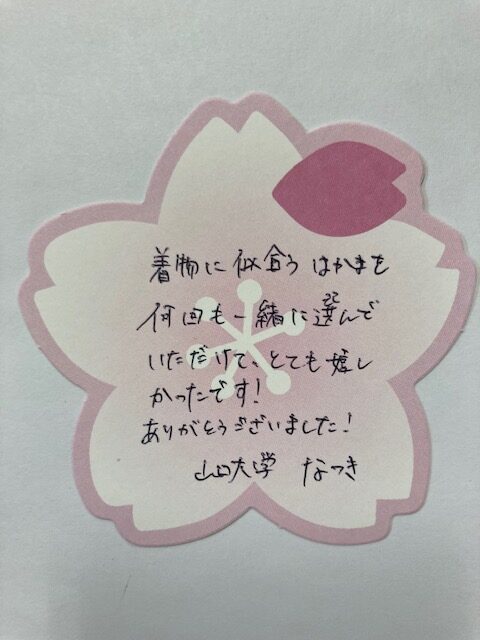 着物に似合うはかまを
何回も一緒に選んで
いただけて、とても嬉し
かったです!
ありがとうございました!
山口大学 なつき